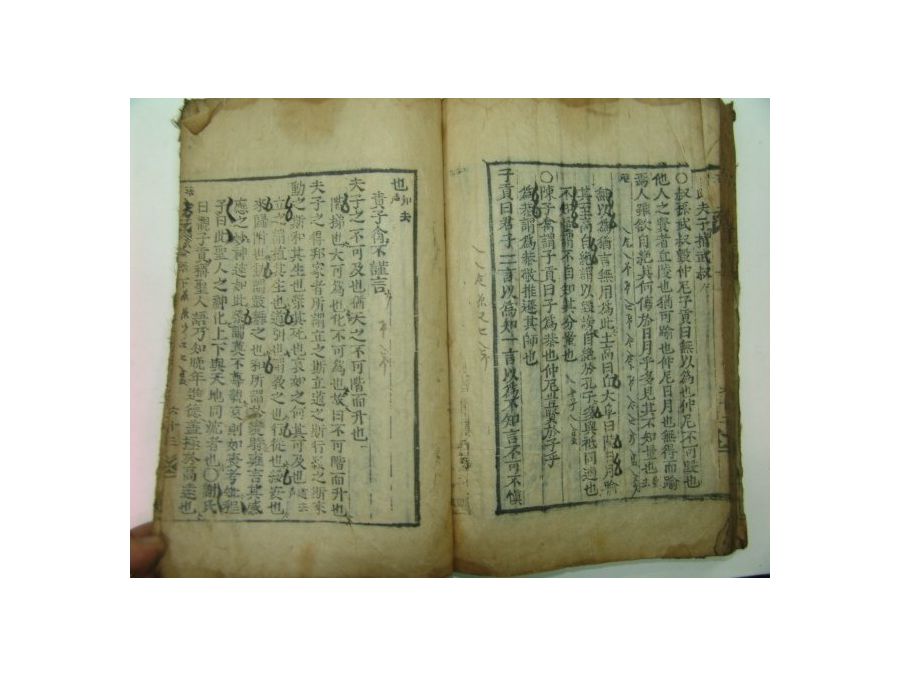 夫子猶武叔
○叔孫武叔毀仲尼子貢曰無以爲也仲尼不可毀也
他人之賢者丘陵也猶可踰也仲尼日月也無得而踰
焉人雖欲自絶其何傷於日月乎多見其不知量也
無以爲猶言無用爲此土高曰丘大阜曰陵日月踰
其至高自絶謂以毀謗自絶於孔子多與秖同適也
不知量謂不自知其分量也
○陳子禽謂子貢曰子爲恭也仲尼豈賢於子乎
爲恭謂爲恭敬推遜其師也
子貢曰君子一言以爲知一言以爲不知言不可不愼
也
責子禽不謹言
夫子之不可及也猶天之不可階而升也
階梯也大可爲也化不可爲也故曰不可階而升也
夫子之得邦家者所謂立之斯立道之斯行綏之斯來
動之斯和其生也榮其死也哀如之何其可及也
立之謂植其生也道引也謂敎之也行從也綏安也
來歸附也動謂鼓舞之也和所謂於變時雍言其感
應之妙神速如此榮謂莫不尊親哀則如喪考妣程
子曰此聖人之神化上下與天地同流者也○謝氏
曰觀子貢稱聖人語乃知晩年進德蓋極於高遠也
六十三